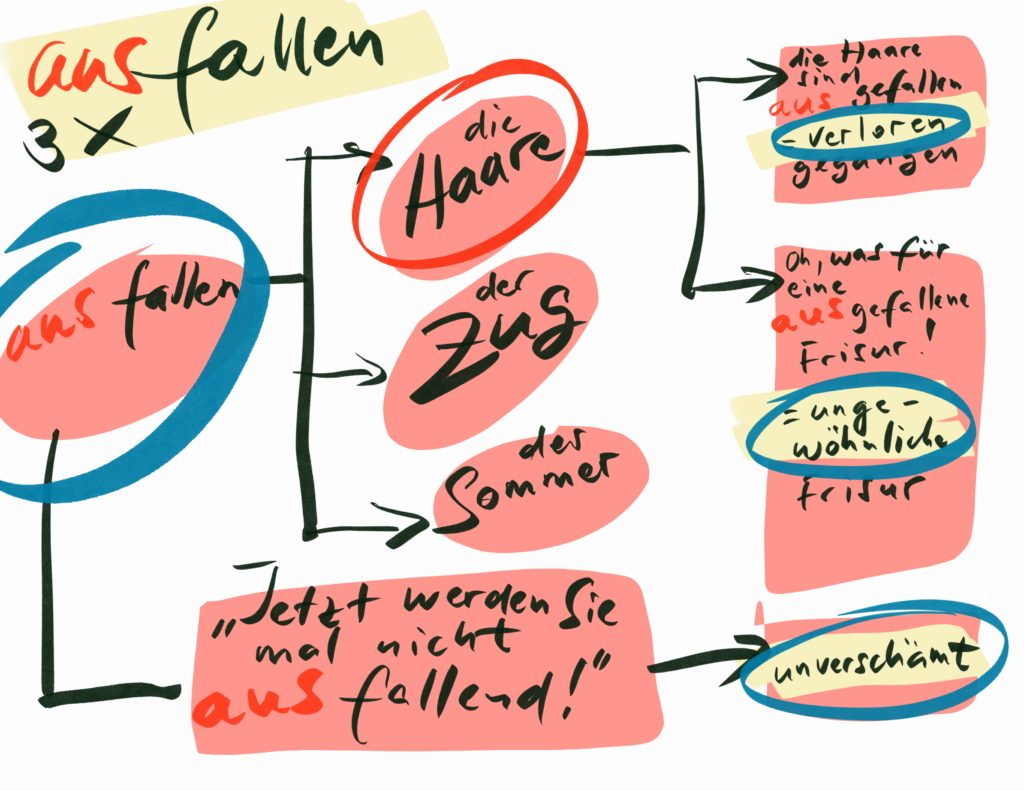 ausfallen
3x
ausfallen
die
Haare
der
Zug
der
Sommer
die Haare
sind
ausgefallen
- verloren
gegangen
Oh, was für
eine
ausgefallene
Frisur!
= unge-
wöhnliche
Frisur
„Jetzt werden Sie
mal nicht
ausfallend!"
unverschämt